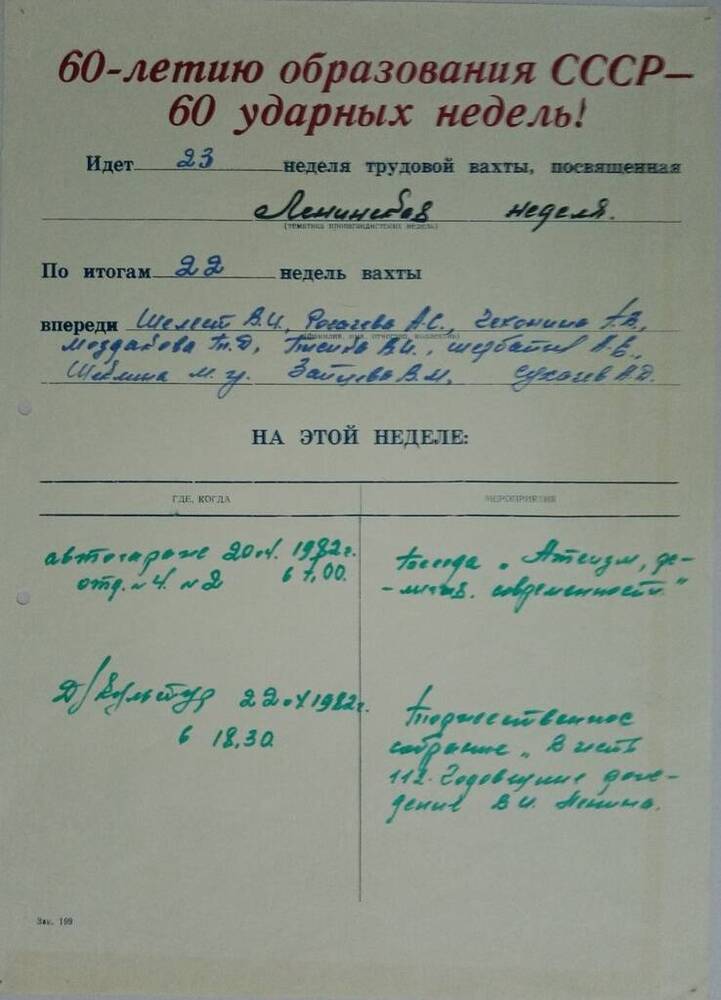 60-летию образования СССР—
60 ударных недель!
Идет 23 неделя трудовой вахты, посвященная
Ленинская неделя.
(тематика пропагандистских недель)
По итогам 22 недель вахты
впереди Шелест В.И., Рогачева А.С., Чехонина А.В.,
(фамилия, имя, отчество, коллектив)
В.И., А.В.,
Шеблина М. Зайцева В.М., Сухачев А.Д.
НА ЭТОЙ НЕДЕЛЕ:
ГДЕ, КОГДА МЕРОПРИЯТИЯ
автогараже 20.4. 1982г.
отд. №4. №2 в 7.00.
Беседа „Атеизм, ре-
-лигия. современность."
Д/Культур 1982г.
в 18.30.
Торжественное
собрание „В честь
112-Годовщине рож-
дения В.И. Ленина.
Зак. 199